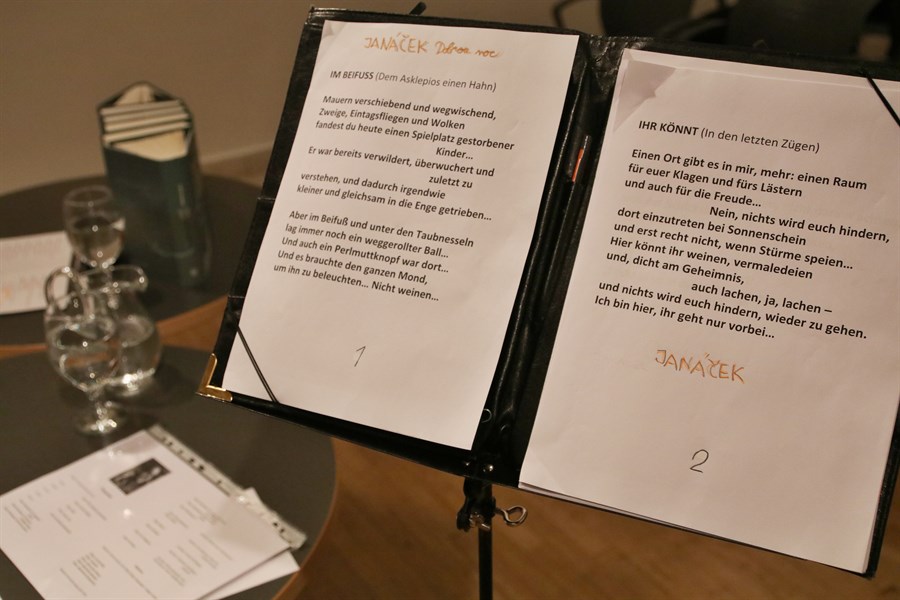 JANÁČEK Dobrou noc
IM BEIFUSS (Dem Asklepios einen Hahn)
Mauern verschiebend und wegwischend,
Zweige, Eintagsfliegen und Wolken
fandest du heute einen Spielplatz gestorbener
Kinder…
Er war bereits verwildert, überwuchert und
zuletzt zu
verstehen, und dadurch irgendwie
kleiner und gleichsam in die Enge getrieben…
Aber im Beifuß und unter den Taubnesseln
lag immer noch ein weggerollter Ball…
Und auch ein Perlmuttknopf war dort…
Und es brauchte den ganzen Mond,
um ihn zu beleuchten… Nicht weinen…
1
IHR KÖNNT (In den letzten Zügen)
Einen Ort gibt es in mir, mehr: einen Raum
für euer Klagen und fürs Lästern
und auch für die Freude…
Nein, nichts wird euch hindern,
dort einzutreten bei Sonnenschein
und erst recht nicht, wenn Stürme speien…
Hier könnt ihr weinen, vermaledeien
und, dicht am Geheimnis,
auch lachen, ja, lachen –
und nichts wird euch hindern, wieder zu gehen.
Ich bin hier, ihr geht nur vorbei…
JANÁČEK
2